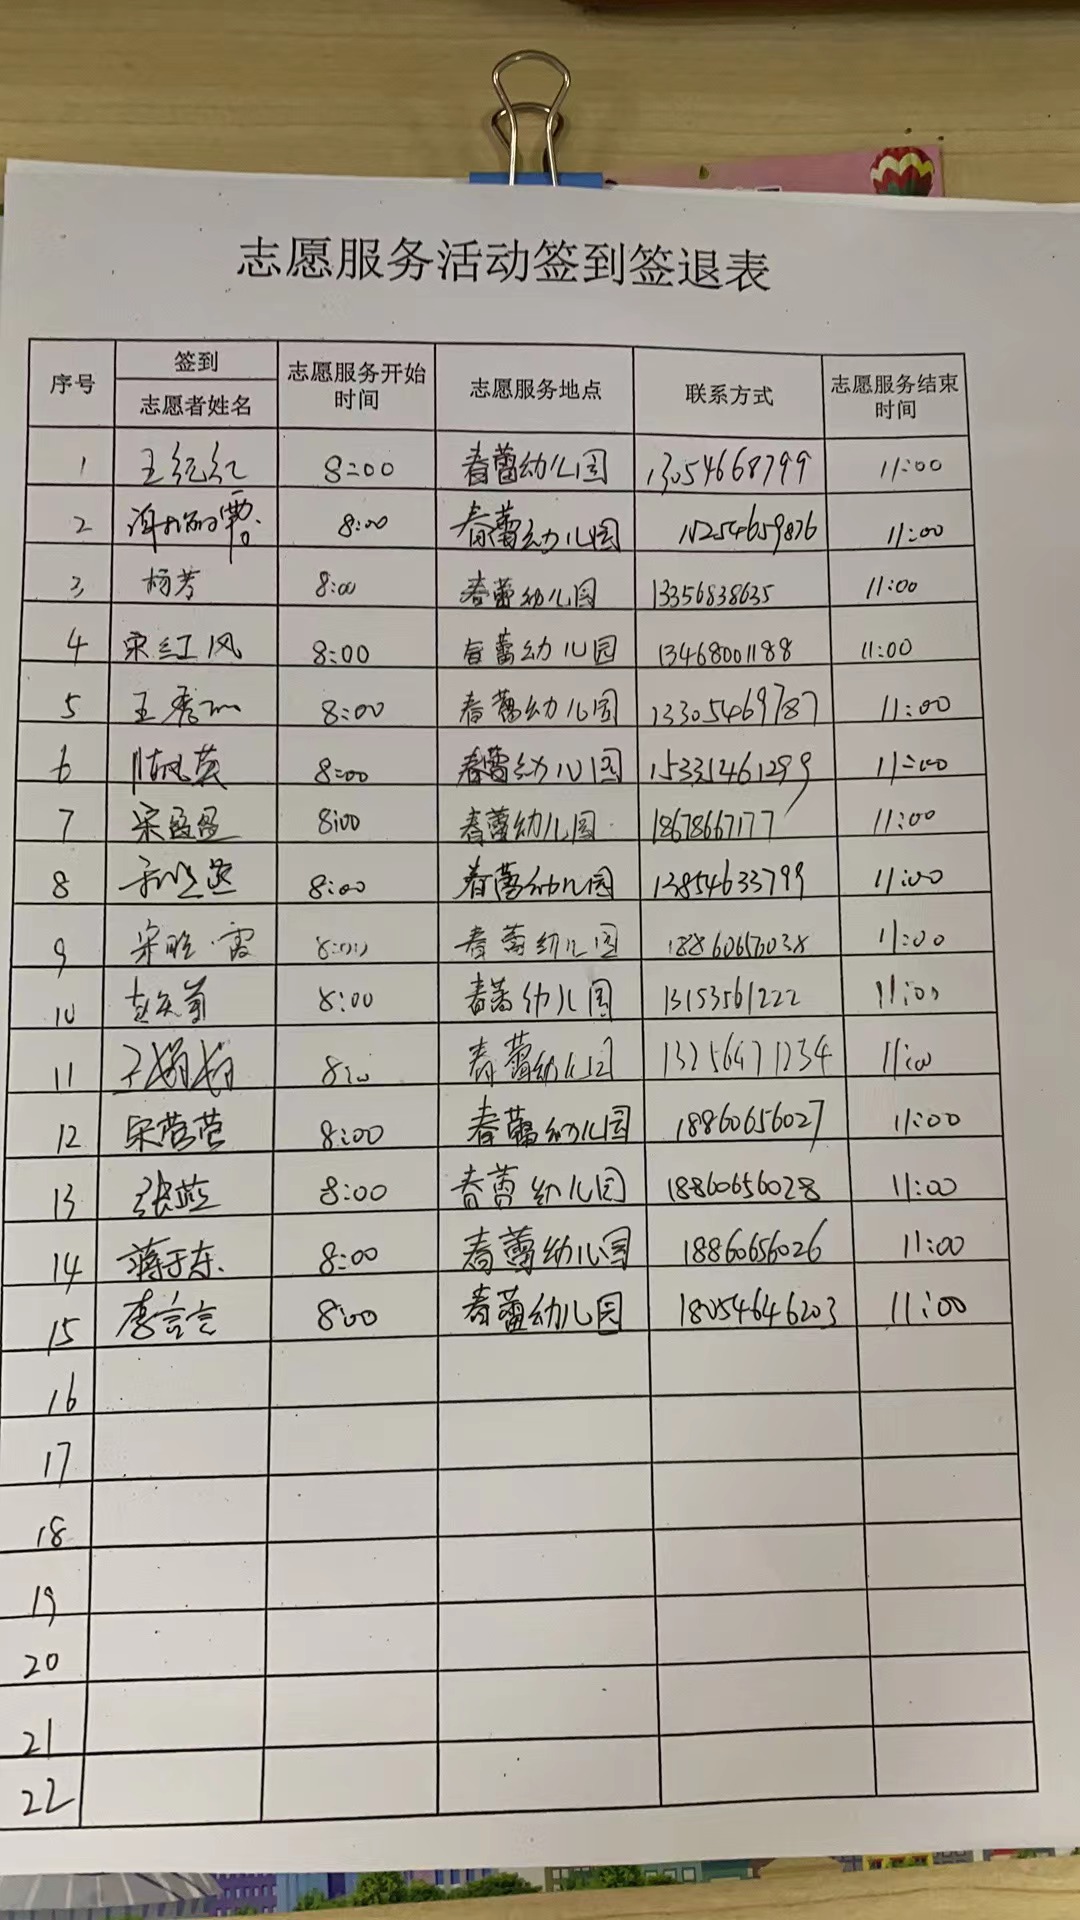 志愿服务活动签到签退表
序号 签到 志愿者姓名 志愿服务开始时间 志愿服务地点 联系方式 志愿服务结束时间
1 王红红 8:00 春蕾幼儿园 13054668799 11:00
2 8:00 春蕾幼儿园 15254659876 11:00
3 杨芳 8:00 春蕾幼儿园 13356838635 11:00
4 宋红风 8:00 春蕾幼儿园 13468001188 11:00
5 王秀 8:00 春蕾幼儿园 13305469787 11:00
6 陈凤英 8:00 春蕾幼儿园 15331461299 11:00
7 宋盈盈 8:00 春蕾幼儿园 18678667177 11:00
8 8:00 春蕾幼儿园 13854633799 11:00
9 宋晓霞 8:00 春蕾幼儿园 18860656038 11:00
10 8:00 春蕾幼儿园 13153561222 11:00
11 8:00 春蕾幼儿园 13256471234 11:00
12 宋营营 8:00 春蕾幼儿园 18860656027 11:00
13 张蓝 8:00 春蕾幼儿园 18860656028 11:00
14 蒋于东 8:00 春蕾幼儿园 18860656026 11:00
15 李言言 8:00 春蕾幼儿园 18054646203 11:00
16
17
18
19
20
21
22